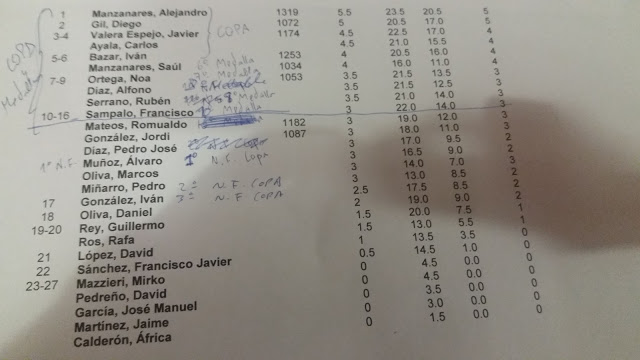 1 Manzanares, Alejandro 1319 5.5 23.5 20.5 5
2 Gil, Diego 1072 5 20.5 17.0 5
3-4 Valera Espejo, Javier COPA 1174 4.5 22.5 17.0 4
Ayala, Carlos 4.5 21.0 15.5 4
5-6 Bazar, Iván 1253 4 20.5 16.0 4
Manzanares, Saúl Medalla 1034 4 16.0 11.0 4
7-9 Ortega, Noa Medalla 1053 3.5 21.5 13.5 3
Díaz, Alfono 3.5 21.5 12.5 3
Serrano, Rubén Medalla 3.5 21.0 14.0 3
10-16 Sampalo, Francisco Medalla 3 22.0 14.0 3
Mateos, Romualdo 1182 3 19.0 12.0 3
González, Jordi 1087 3 18.0 11.0 3
Díaz, Pedro José 3 17.0 9.5 2
1º N.F. Muñoz, Álvaro 1º N.F. Copa 3 16.5 9.0 2
Oliva, Marcos 3 14.0 7.0 3
Miñarro, Pedro 2º N.F. COPA 3 13.0 8.5 2
17 González, Iván 3º N.F. COPA 2.5 17.5 8.5 2
18 Oliva, Daniel 2 19.0 9.0 2
19-20 Rey, Guillermo 1.5 20.0 7.5 1
Ros, Rafa 1.5 13.0 5.5 1
21 López, David 1 13.5 3.5 0
22 Sánchez, Francisco Javier 0.5 14.5 1.0 0
23-27 Mazzieri, Mirko 0 4.5 0.0 0
Pedreño, David 0 4.5 0.0 0
García, José Manuel 0 3.5 0.0 0
Martínez, Jaime 0 3.0 0.0 0
Calderón, África 0 1.5 0.0 0
COPA